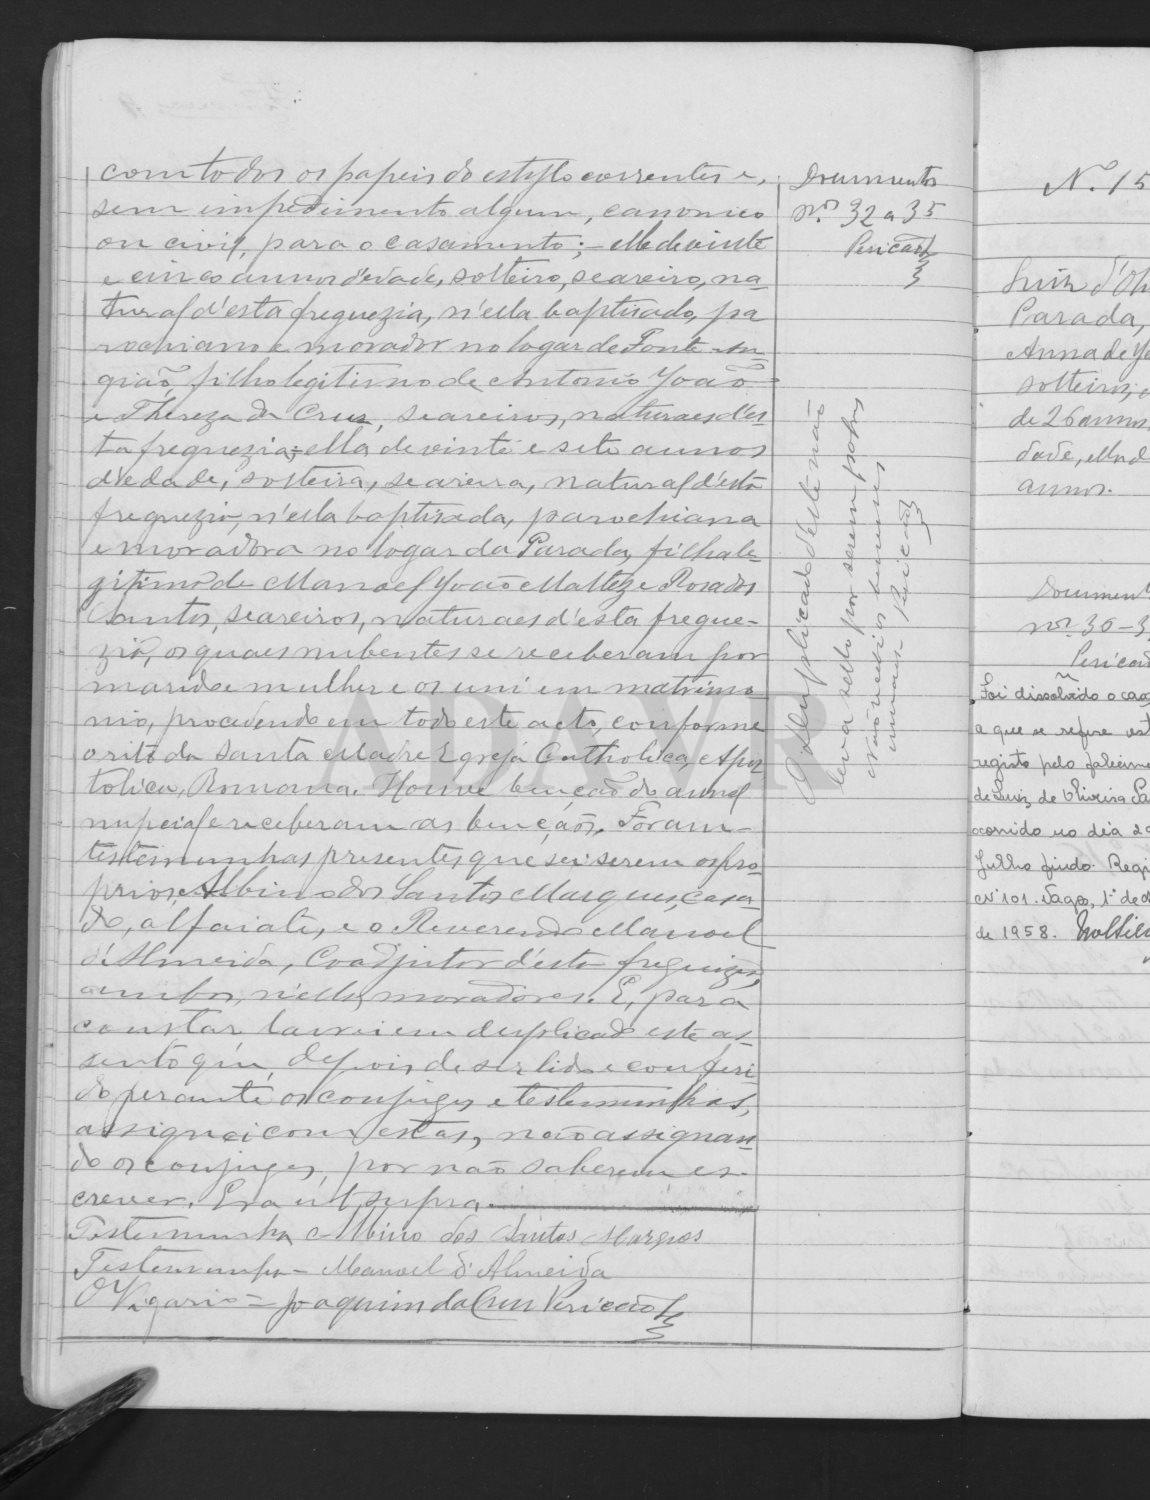 com todos os papeis do estylo correntes e,
sem impedimento algum, canonico
ou civil, para o casamento; - elle de vinte
e cinco annos d'edade, solteiro, seareiro, na-
tural d'esta freguezia, n'ella baptisado, pa
rochiano e morador no logar de Fonte
gião, filho legitimo de Antonio João
e Thereza da Cruz, seareiros, naturaes d'es-
ta freguezia; ella de vinte e sete annos
d'edade, solteira, seareira, natural d'esta
freguezia, n'ella baptisada, parochiana
e moradora no logar da Parada, filha le-
gitima de Manoel João Maltez e Rosa dos
Santos, seareiros, naturaes d'esta fregue-
zia, os quaes nubentes se receberam por
marido e mulher e os uni em matrimo-
nio, procedendo em todo este acto, conforme
o rito da Santa Madre Egreja Catholica, Apos
tolica, Romana. Houve benção do annel
nupcial e receberam as bençãos. Foram
testemunhas presentes, que sei serem os pro-
prios, Albino dos Santos Marques, casa-
do, alfaiate, e o Reverendo Manoel
d'Almeida, Coadjutor d'esta freguezia,
ambos, n'ella, moradores. E, para
constar lavrei em duplicado este as-
sento que, depois de ser lido e conferi-
do perante os conjuges e testemunhas,
assignei com estas, não assignan-
do os conjuges, por não saberem es-
crever. Era ut supra.
Testemunha Albino dos Santos Marques
Testemunha - Manoel d'Almeida
O Vigario = Joaquim da Cruz Pericão
Documentos
Nos 32 a 35
Pericão
O duplicado d'este não
leva sello por serem pobres
Pericão
ADAVR
N.º 15
Luiz d'Ol
Parada,
Anna de
solteiros,
de 26 annos
dade,
annos.
Document
nos 30-3
Pericão
Foi dissolvido o cas
a que se refere est
registo pelo falecime
de Luiz de Oliveira Pa
ocorrido no dia 29
Julho findo. Regi
Nº 101. Vagos, 1º de
de 1958.